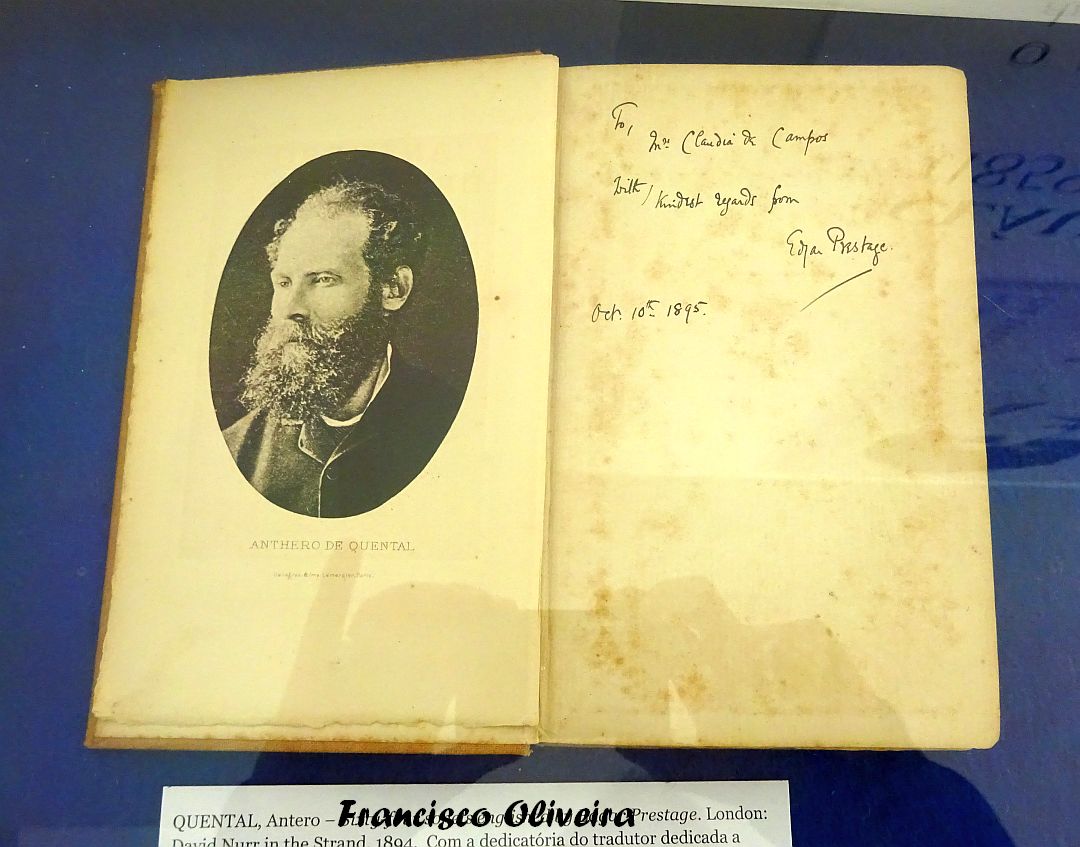 To,
Mrs Claudia de Campos
With kindest regards from
Edgar Prestage.
Oct. 10th 1895.
ANTHERO DE QUENTAL
QUENTAL, Antero – Prestage. London:
Francisco Oliveira
David Nurr in the Strand, 1894. Com a dedicatória do tradutor dedicada a